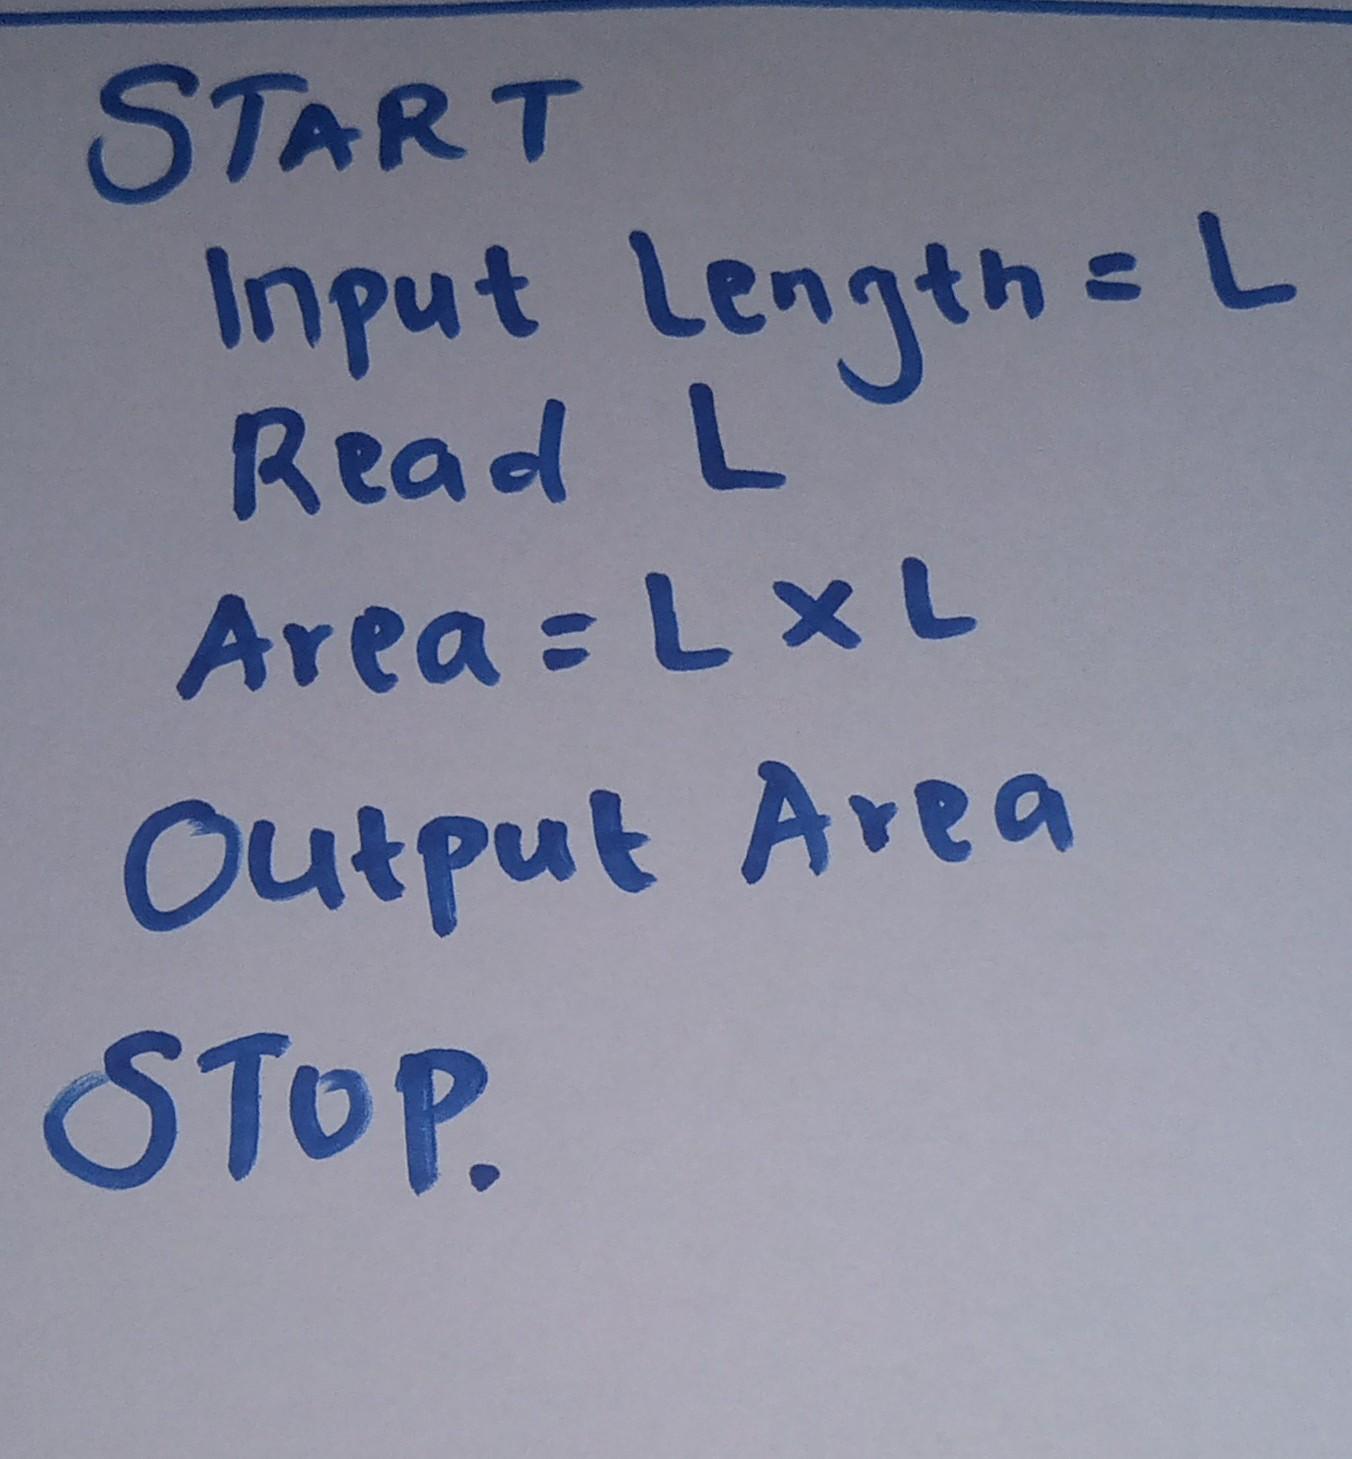 START
Input Length = L
Read L
Area = L × L
Output Area
STOP.